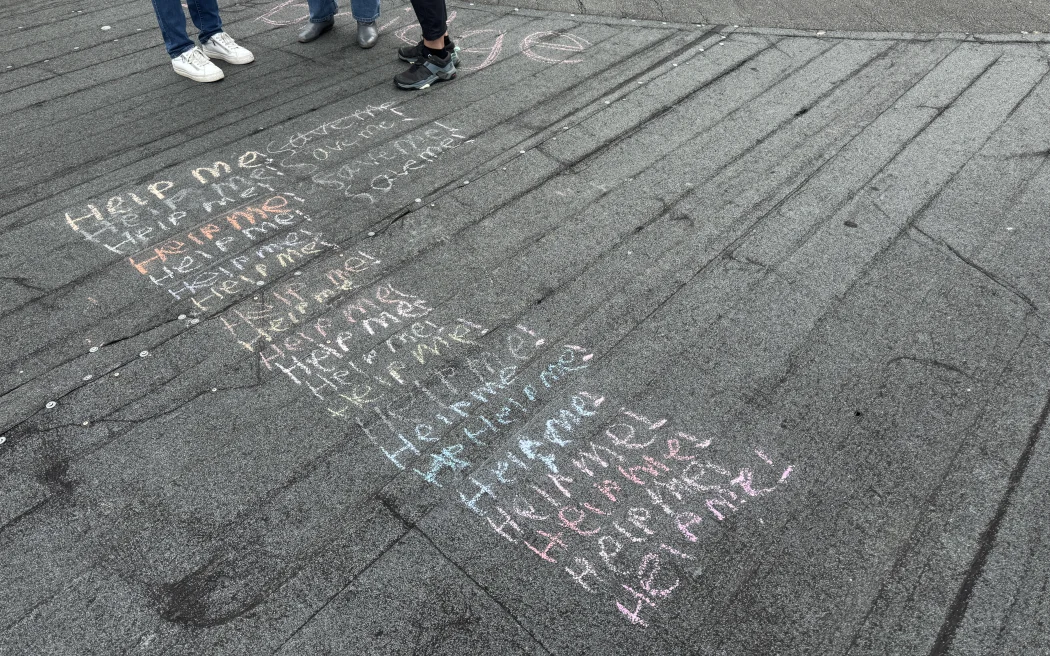 Help me! save me!
Help me! Save me!
Help me! Save me!
Help me! Save me!
Help me!
Help me!
Help me!
Help me!
Help me!
Help me!
Help me!
Help me!
Help me!
Help me!
Help me!
HP Help me!
Help me!
Help me!
Help me!
Help me!
Help me!